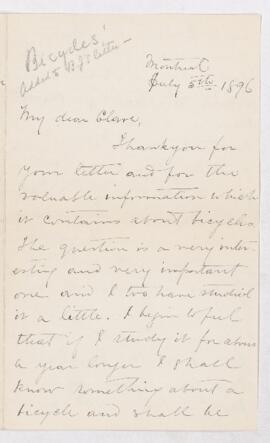 Bicycles!
Added to B.J's letter –
Montreal
July 5th 1896
My dear Clare,
Thank you for
your letter and for the
valuable information which
it contains about bicycles.
The question is a very inter
esting and very important
one and I too have studied
it a little. I begin to feel
that if I study it for about
a year longer I shall
know something about a
bicycle and shall be